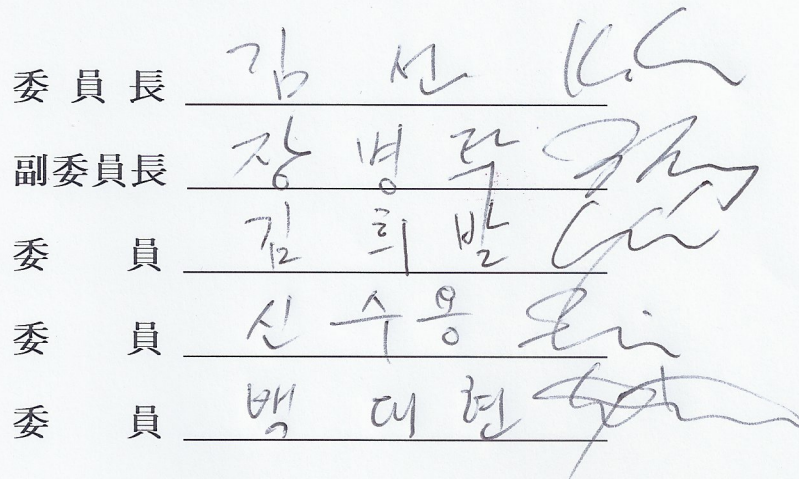 委員長 김 선
副委員長 장 병 탁
委員 김 희 발
委員 신 수 용
委員 백 대 현